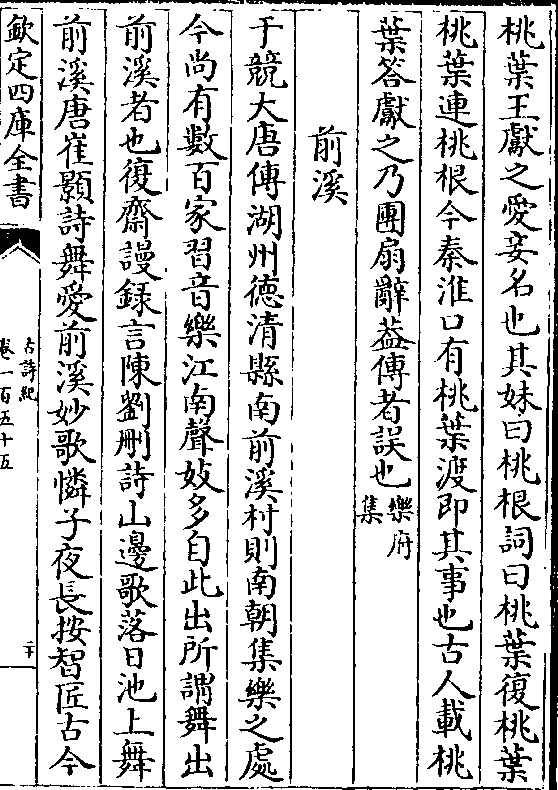 桃葉王獻之愛妾名也其妹曰桃根詞曰桃葉復桃葉
桃葉連桃根今秦淮口有桃葉渡即其事也古人載桃
葉答獻之乃團扇辭葢傳者誤也樂府集
前溪
于競大唐傳湖州德清縣南前溪村則南朝集樂之處
今尚有數百家習音樂江南聲妓多自此出所謂舞出
前溪者也復齋謾録言陳劉刪詩山邊歌落日池上舞
前溪唐崔顥詩舞愛前溪妙歌憐子夜長按智匠古今
欽定四庫全書
古詩紀
卷一百五十五
二十